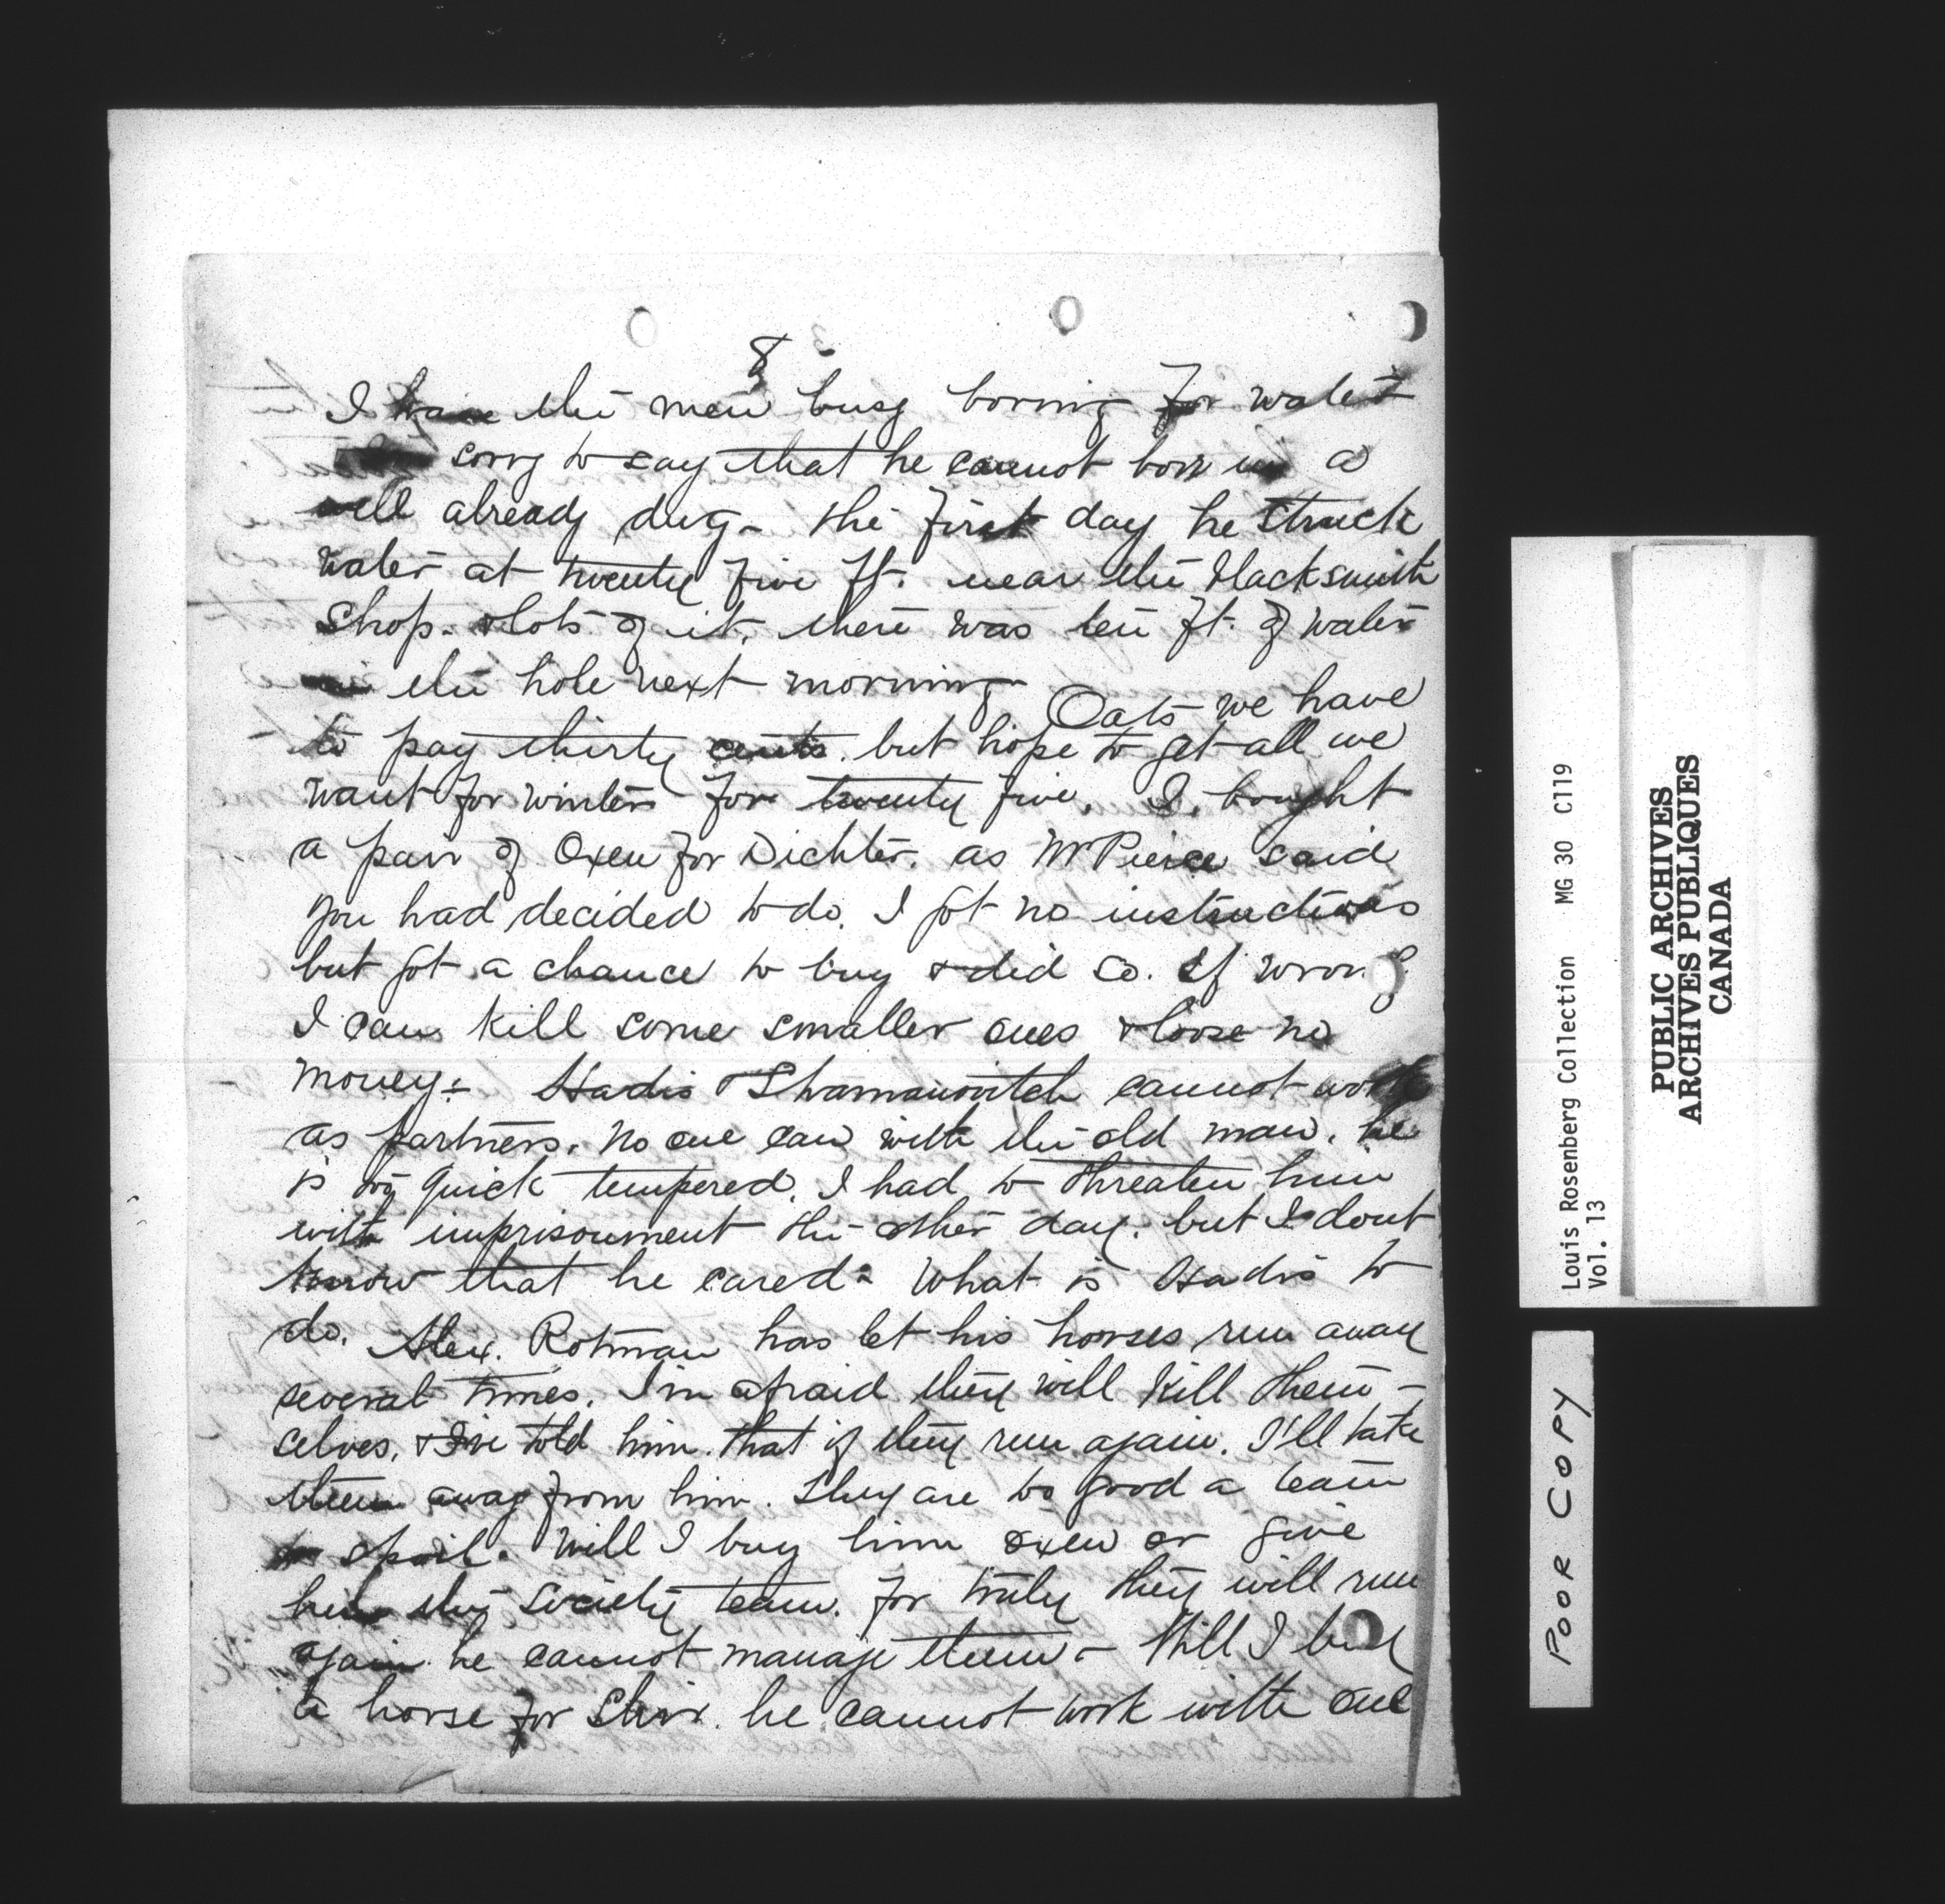 8
I have the men busy boring for water
sorry to say that he cannot bore in a
well already dug - the first day he struck
water at twenty five ft. near the Blacksmith
Shop. & lots of it. there was ten ft. of water
in the hole next morning Oats we have
to pay thirty cents. but hope to get all we
want for winter for twenty five. I bought
a pair of Oxen for Dichter. as Mr Pierce said
you had decided to do. I got no instructions
but got a chance to buy & did so. If wrong
I can kill some smaller ones & loose no
money. Hadis & Shamanovitch cannot work
as partners. no one can with the old man. he
is too quick tempered. I had to threaten him
with imprisonment the other day. but I dont
know that he cared. What is Hadis to
do. Alex. Rotman has let his horses run away
several times. I'm afraid they will kill them-
selves. & I've told him that if they run again. I'll take
them away from him. They are to good a team
to spoil. Will I buy him oxen or give
him the Society team. for truly they will run
again. he cannot manage them - Will I buy
a horse for he cannot work with one
Louis Rosenberg Collection MG 30 C119
Vol. 13
PUBLIC ARCHIVES
ARCHIVES PUBLIQUES
CANADA
POOR COPY